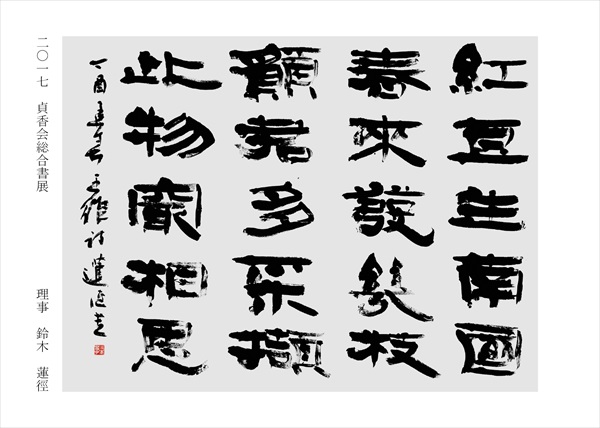 紅豆生南國
春來發幾枝
願君多采擷
此物最相思
丁酉孟春 王維詩 蓮徑書
二〇一七 貞香会総合書展
理事 鈴木 蓮徑